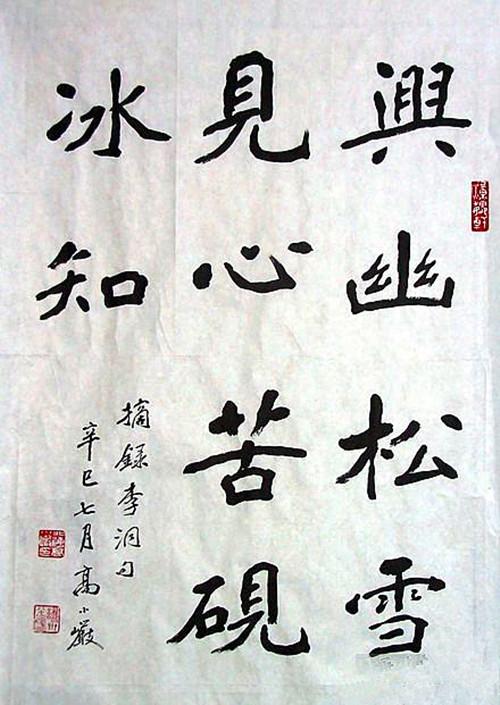 興幽松雪
見心苦硯
冰知
摘録李洞句
辛巳七月高小巖